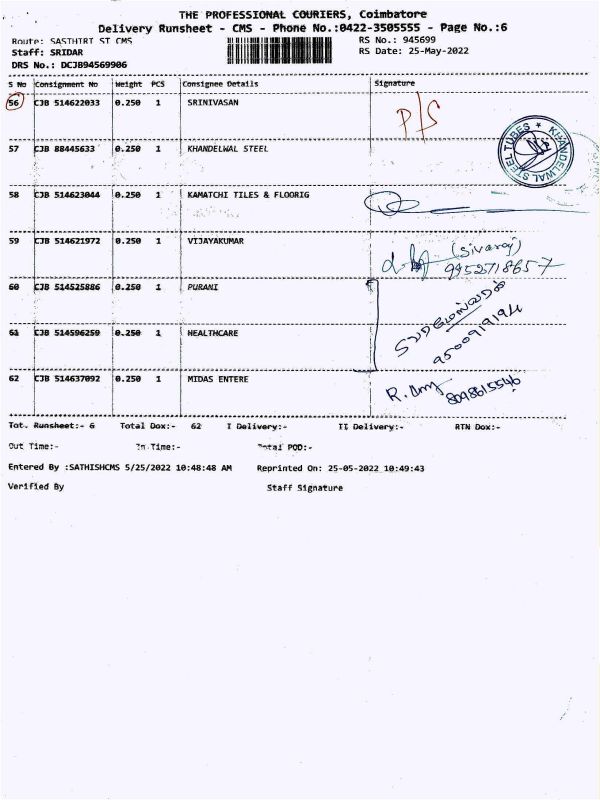 THE PROFESSIONAL COURIERS, Coimbatore
Delivery Runsheet - CMS - Phone No.:0422-3505555 - Page No.:6
Route: SASTHIRI ST CMS RS No.: 945699
Staff: SRIDAR RS Date: 25-May-2022
DRS No.: DCJB94569906
S No Consignment No Weight PCS Consignee Details Signature
56 CJB 514622033 0.250 1 SRINIVASAN P/S
57 CJB 88445633 0.250 1 KHANDELWAL STEEL
KHANDELWAL STEEL TUBES
58 CJB 514623044 0.250 1 KAMATCHI TILES & FLOORIG
59 CJB 514621972 0.250 1 VIJAYAKUMAR
(Sivaraj)
9952718657
60 CJB 514525886 0.250 1 PURANI
61 CJB 514596259 0.250 1 HEALTHCARE
9500919194
62 CJB 514637092 0.250 1 MIDAS ENTERE R.
8098615546
Tot. Runsheet:- 6 Total Dox:- 62 I Delivery:- II Delivery:- RTN Dox:-
Out Time:- In Time:- Total POD:-
Entered By :SATHISHCMS 5/25/2022 10:48:48 AM Reprinted On: 25-05-2022 10:49:43
Verified By Staff Signature